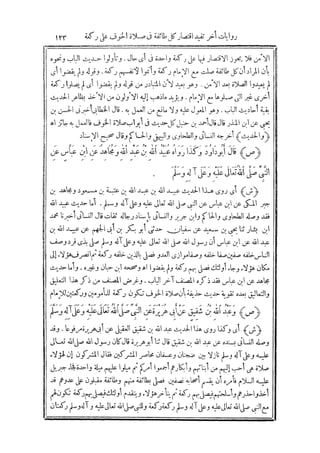 روايات أخر تفيد اقتصار كل طائفة فى صلاة الخوف على ركعة ١٢٣
الأمن فلا يجوز الاقتصار فيها على ركعة واحدة فى أى حال. وتأولوا حديث الباب ونحوه
بأن المراد أن كل طائفة صلت مع الإمام ركعة وأتموا لأنفسهم ركعة. وقوله ولم يقضوا أى
لم يعيدوا الصلاة بعد الأمن. وهو بعيد لأن المتبادر من قوله ولم يقضوا أى لم يصلوا ركعة
أخرى غير التى صلوها مع الإمام. ويؤيد ماذهب إليه الأولون من الأخذ بظاهر الحديث
بقية أحاديث الباب. وهو المعول عليه ولا مانع من العمل به. قال الخطابى أخبرنى الحسن بن
يحيى عن ابن المنذر قال قال أحمد بن حنبل كل حديث فى أبواب صلاة الخوف فالعمل به جائز اهـ
﴿والحديث﴾ أخرجه النسائى والطحاوى والبيهقى والحاكم وقال صحيح الإسناد
﴿ص﴾ قَالَ أَبُو دَاوُدَ وَكَذَا رَوَاهُ عُبَيْدُ اللهِ بْنُ عَبْدِ اللهِ وَمُجَاهِدٌ عَنِ ابْنِ عَبَّاسٍ عَنِ
النَّبِىِّ صَلَّى اللهُ تَعَالَى عَلَيْهِ وَعَلَى آلِهِ وَسَلَّمَ.
﴿ش﴾ أى روى هذا الحديث عبيد الله بن عبد الله بن عتبة بن مسعود ومجاهد بن
جبر المكى عن ابن عباس عن النبى صلى الله تعالى عليه وعلى آله وسلم. أما حديث عبيد الله
فقد وصله الطحاوى والحاكم وابن جرير والنسائى بإسناد رجاله ثقات قال النسائى أخبرنا محمد
ابن بشار ثنا يحيى بن سعيد عن سفيان حدثنى أبو بكر بن أبى الجهم عن عبيد الله بن
عبد الله عن ابن عباس أن رسول الله صلى الله تعالى عليه وعلى آله وسلم صلى بذى قرد وصف
الناس خلفه صفين صفا خلفه وصفا موازى العدو فصلى بالذين خلفه ركعة ثم انصرف هؤلاء إلى
مكان هؤلاء. وجاء أولئك فصلى بهم ركعة ولم يقضوا اهـ وصححه ابن حبان وغيره. وأما حديث
مجاهد عن ابن عباس فقد ذكره المصنف آخر الباب. وغرض المصنف من ذكر هذا التعليق
والتعاليق بعده تقوية حديث حذيفة أن صلاة الخوف تكون ركعة للمأمومين وركعتين للإمام
﴿ص﴾ وَعَبْدُ اللهِ بْنُ شَقِيقٍ عَنْ أَبِى هُرَيْرَةَ عَنِ النَّبِىِّ صَلَّى اللهُ تَعَالَى عَلَيْهِ وَعَلَى آلِهِ وَسَلَّمَ
﴿ش﴾ أى وكذا روى هذا الحديث عبد الله بن شقيق العقيلى عن أبى هريرة مرفوعا. وقد
وصله النسائى بسنده عن عبد الله بن شقيق قال ثنا أبو هريرة قال كان رسول الله صلى الله تعالى
عليه وعلى آله وسلم نازلا بين ضجنان وعسفان محاصر المشركين فقال المشركون إن لهؤلاء
صلاة هى أحب إليهم من أبنائهم وأبكارهم أجمعوا أمركم ثم ميلوا عليهم ميلة واحدة فجاء جبريل
عليه السلام فأمره أن يقسم أصحابه نصفين فيصلى بطائفة منهم وطائفة مقبلون على عدوهم قد
أخذوا حذرهم وأسلحتهم فيصلى بهم ركعة ثم يتأخر هؤلاء. ويتقدم أولئك فيصلى بهم ركعة تكون لهم
مع النبى صلى الله تعالى عليه وعلى آله وسلم ركعة ركعة وللنبى صلى الله تعالى عليه وآله وسلم ركعتان